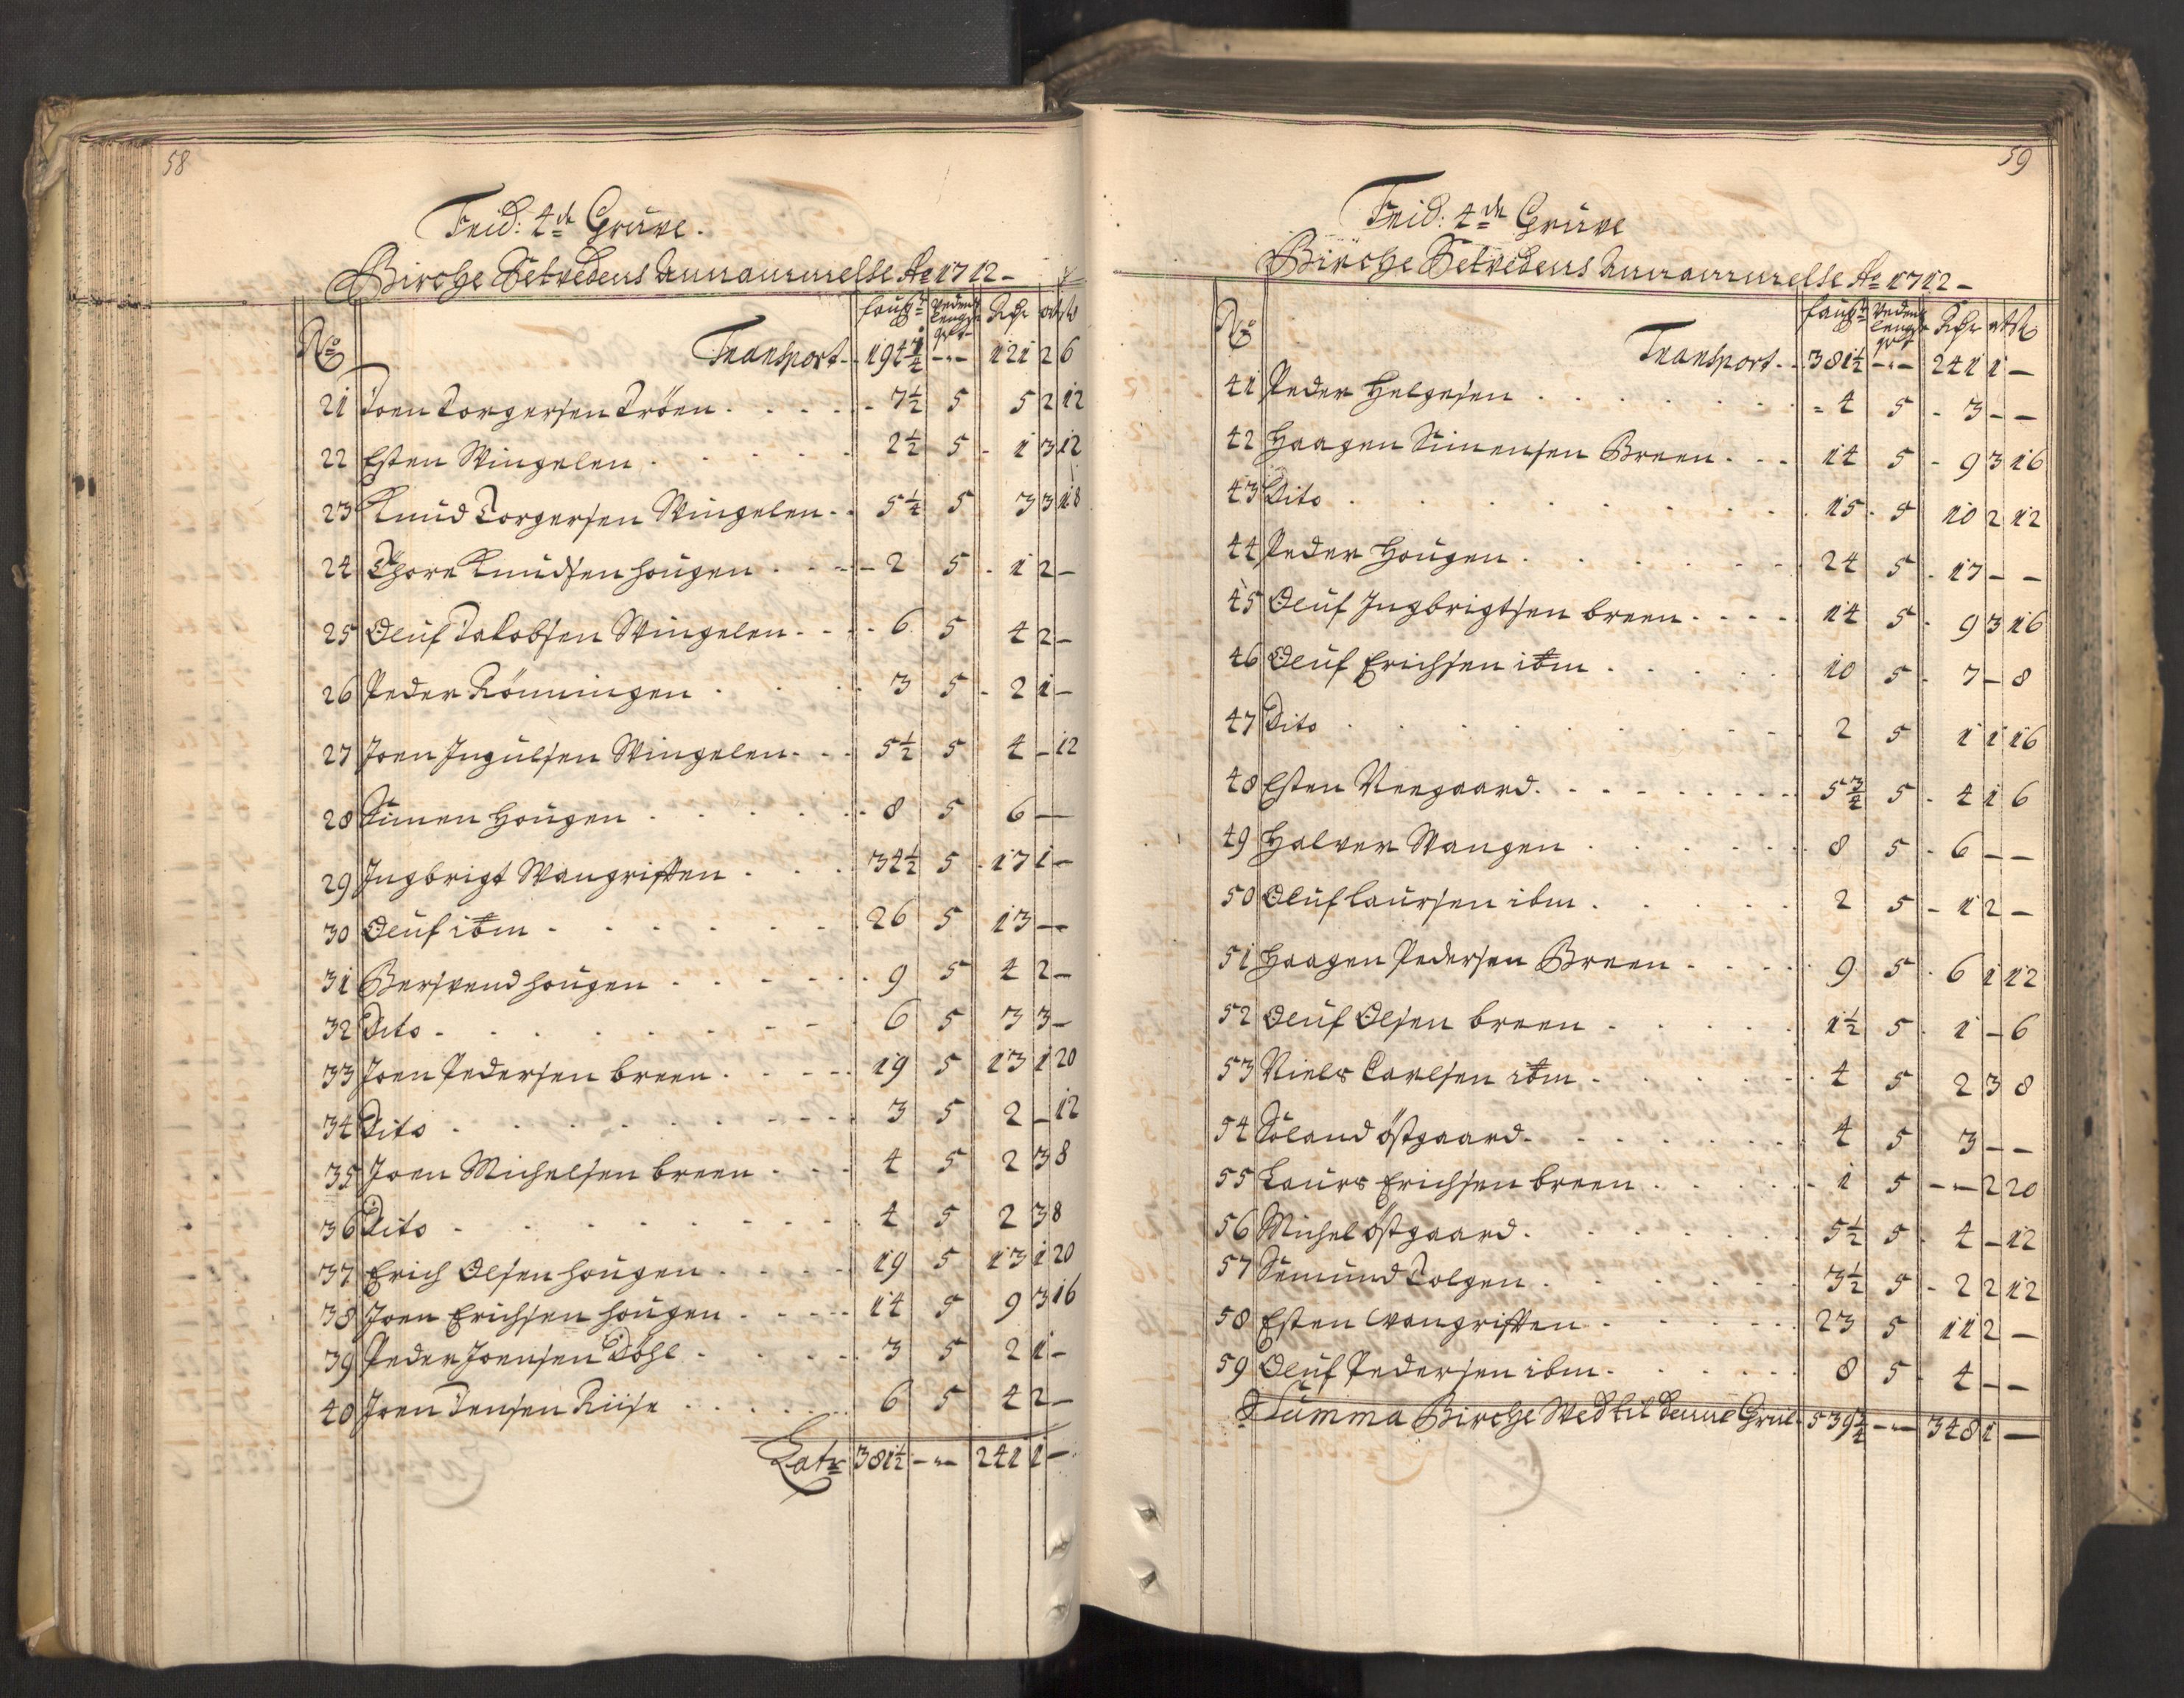 58
Frid: 4de Grüve.
Birche Setvedens Annammelse Ao 1712
No Faufn. Vedens Lengde qvt Rdr ort s
Transport 194 3/4 - 121 2 6
21 Joen Torgersen Tröen 7 1/2 5 5 2 12
22 Esten Wingelen 2 1/2 5 1 3 12
23 Knud Torgersen Wingelen 5 1/4 5 3 3 18
24 Thore Knudsen Hougen 2 5 1 2 -
25 Oluf Jakobsen Wingelen 6 5 4 2 -
26 Peder Rönningen 3 5 2 1 -
27 Joen Ingulfsen Wingelen 5 1/2 5 4 - 12
28 Simen Hougen 8 5 6 -
29 Ingbrigt Wangristen 34 1/2 5 17 1 -
30 Oluf ibm 26 5 13 - -
31 Bersvend Hougen 9 5 4 2 -
32 Dito 6 5 3 3 -
33 Joen Pedersen breen 19 5 13 1 20
34 Dito 3 5 2 - 12
35 Joen Michelsen breen 4 5 2 3 8
36 Dito 4 5 2 3 8
37 Erich Olsen Hougen 19 5 13 1 20
38 Joen Erichsen Hougen 14 5 9 3 16
39 Peder Joensen Döhl 3 5 2 1 -
40 Joen Jensen Riise 6 5 4 2 -
Latr 381 1/2 - 241 1 -
59
Frid: 4de Grüve
Birche Setvedens Annammelse Ao 1712
No Faufn. Vedens Lengde qvt Rdr ort s
Transport 381 1/2 - 241 1 -
41 Peder Helgesen 4 5 3 - -
42 Haagen Simensen Breen 14 5 9 3 16
43 Dito 15 5 10 2 12
44 Peder Hougen 24 5 17 - -
45 Oluf Ingbrigtsen breen 14 5 9 3 16
46 Oluf Erichsen ibm 10 5 7 - 8
47 Dito 2 5 1 1 16
48 Esten Neegaard 5 3/4 5 4 1 6
49 Halver Wangen 8 5 6 - -
50 Oluf Laursen ibm 2 5 1 2 -
51 Haagen Pedersen Breen 9 5 6 1 12
52 Oluf Olsen breen 1 1/2 5 1 - 6
53 Niels Carlsen ibm 4 5 2 3 8
54 Söland östgaard 4 5 3 - -
55 Laurs Erichsen breen 1 5 - 2 20
56 Michel östgaard 5 1/2 5 4 - 12
57 Semund Tolgen 3 1/2 5 2 2 12
58 Esten Wangristen 23 5 11 2 -
59 Oluf Pedersen ibm 8 5 4 - -
Summa Birche Wed til denne Grue 539 3/4 - 348 1 -